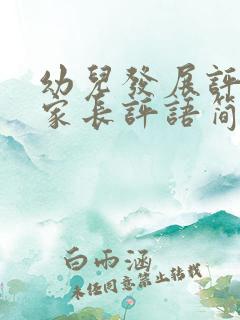 幼兒發展評
家長評語簡
白雨涵
未經同意禁止轉載